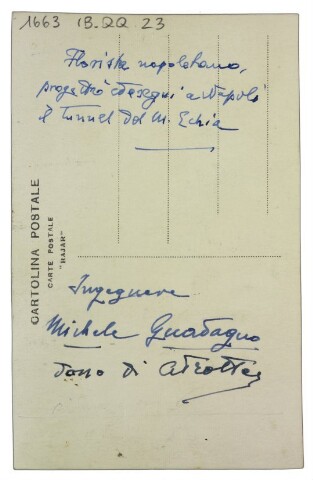 1663 IB.QQ 23
Florista napoletano,
progettò ed eseguì a Napoli
il Tunnel del M. Echia
CARTOLINA POSTALE
CARTE POSTALE
"HAJAR"
Ingegnere
Michele Guadagno
dono di A. Trotter